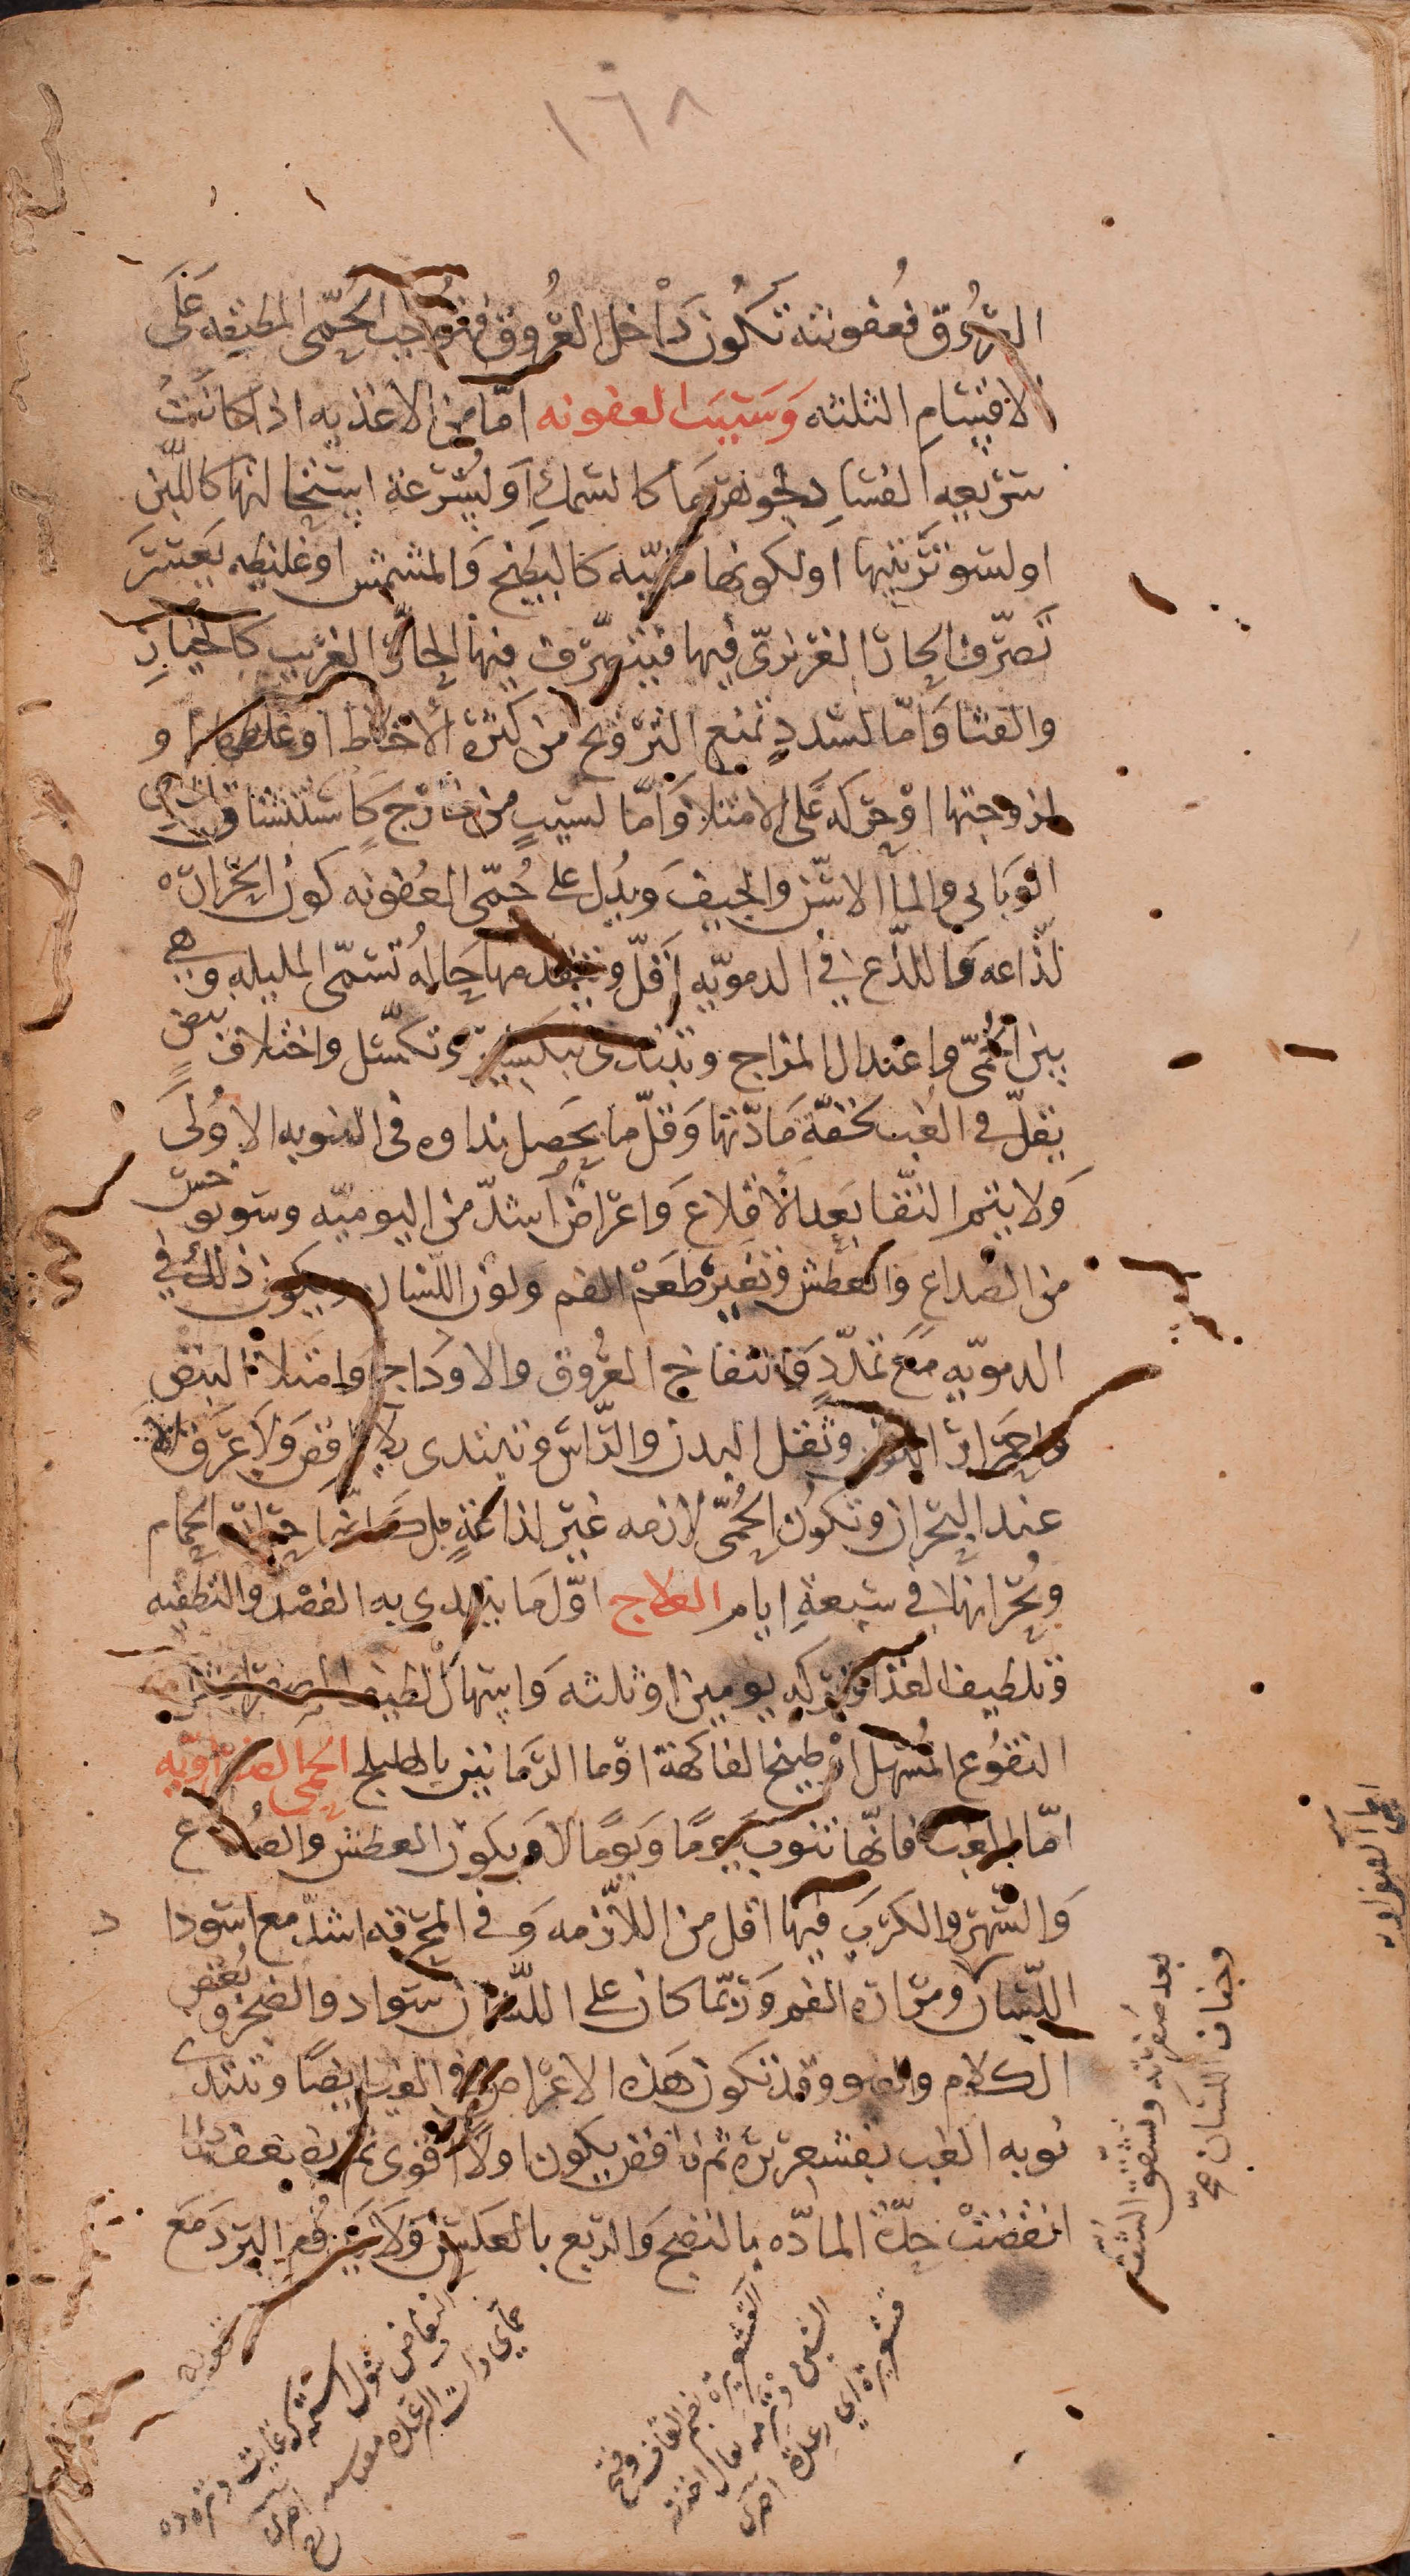 ١٦٨
العروق فعفونته تكون داخل العروق فتوجب الحمّى المطبقه على
الاقسام الثلثه وسبب العفونه امّا من الاغذيه اذا كانت
سريعه الفساد لجوهرها كالسمك او لسرعة استحالتها كاللبن
او لسو ترتيبها او لكونها مائيّه كالبطيخ والمشمش او غليظه يعسر
تصرّف الحار الغريزيّ فيها فيتصرّف فيها الحارّ الغريب كالخيار
والقثا وامّا لسدد تمنع التروّح من كثرة الأخلاط او غلظها او
لزوجتها او حركه على الامتلا وامّا لسبب من خارج كاستنشاق الهوى
الوبائي والما الاسن والجيف ويدل على حمّى العفونه كون الحراره
لذّاعه واللذع في الدمويّه اقلّ ويتقدمها حاله تسمّى المليله وهي
بين الحمّى واعتدال المزاج وتبتدى بتكسير وتكسّل واختلاف نبض
يقلّ في الغب لخفّة مادّتها وقلّ ما يحصل نداوه في النوبه الاولى
ولا يتم النّقا بعد الأقلاع واعراض اشدّ من اليوميّه وسوبو حس
من الصداع والعطش وتغير طعم الفم ولون اللسان ويكون ذلك في
الدمويّه مع تمدّد وانتفاخ العروق والاوداج وامتلا النبض
واحمرار اللون وثقل البدن والرّاس وتبتدى بلا نافض ولا عرق الا
عند البحران وتكون الحمّى لازمه غير لذاعة بل كانّها حرارة الحمام
وبحرانها في سبعة ايام العلاج اوّل ما يبتدي به الفصد والتطفيه
وتلطيف الغذا وتركه يومين او ثلثه واسهال لطيف الصفرا بشرب
النقوع المسهل او طبيخ الفاكهة او ما الرمانين بالهليلج الحمى الصفراويّه
امّا الغب فانّها تنوب يوما ويوما لا ويكون العطش والصداع
والسهر والكرب فيها اقل من اللازمه وفي المحرقه اشدّ مع اسودا د
اللسان ومرارة الفم وربّما كان على اللسان سواد والضجر وبغض
الكلام والضو وقد تكون هذه الاعراض في الغب ايضا وتبتدى
نوبه الغب بقشعريره ثم نافض يكون اولا اقوى ثم
انقضت حدّة المادّه بالنضج والربع بالعكس ولا البرد مع
بعد صفرته وتشقق الشفه
وجفاف اللسان صح
القشعريرة بضم القاف وفتح
الشين يقال اخذته
قشعريرة اي رعدة